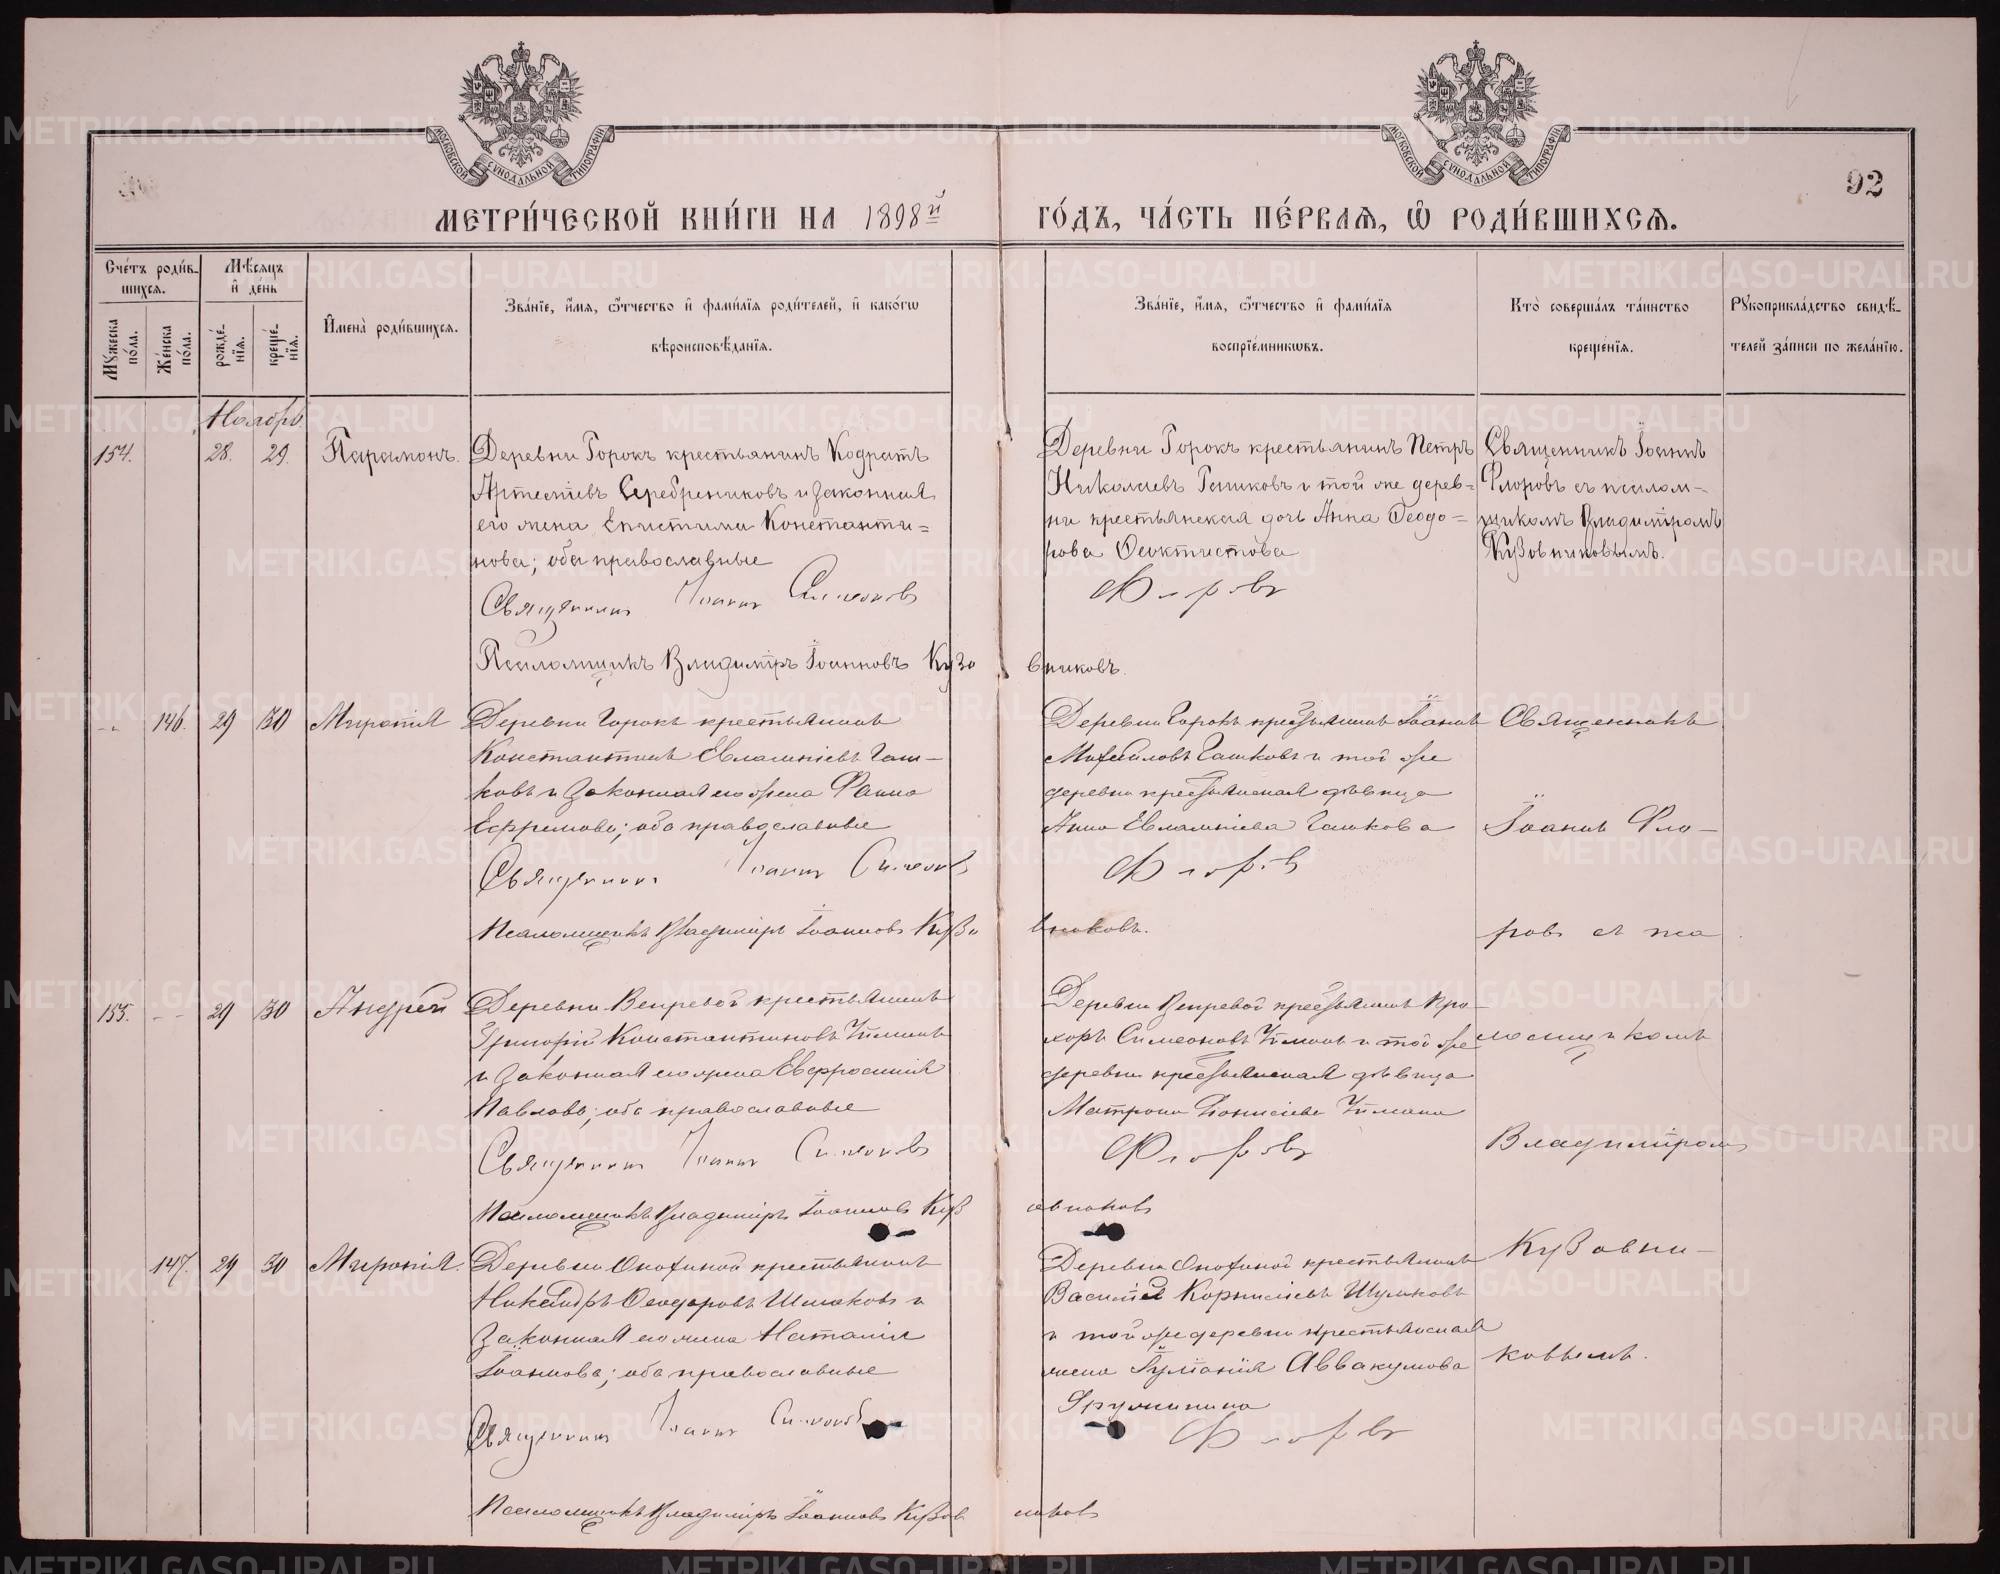 МОСКОВСКОЙ СѴНОДАЛЬНОЙ ТИПОГРАФІИ
МОСКОВСКОЙ СѴНОДАЛЬНОЙ ТИПОГРАФІИ
92
МЕТРИ́ЧЕСКОЙ КНИ́ГИ НА 1898й
ГО́ДЪ, ЧА́СТЬ ПЕ́РВАѦ, Ѡ РОДИ́ВШИХСѦ.
Сче́тъ роди́в-
шихсѧ.
Мꙋ́жеска по́ла.
Же́нска по́ла.
Мѣ́сѧцъ и де́нь
рожде́-нїѧ.
креще́-нїѧ.
Имена̀ роди́вшихсѧ.
Зва́нїе, и́мѧ, ѻ́тчество и фами́лїѧ роди́телей, и како́гѡ
вѣроисповѣ́данїѧ.
Зва́нїе, и́мѧ, ѻ́тчество и фами́лїѧ
воспрїе́мникѡвъ.
Кто̀ соверша́лъ та́инство
креще́нїѧ.
Рꙋкоприкла́дство свидѣ́-
телей за́писи по жела́нїю.
Ноябрь
154. 28. 29. Парамонъ.
Деревни Горокъ крестьянинъ Кодратъ
Артемiевъ Серебрениковъ и законная
его жена Епистимия Константи=
нова; оба православные
Священникъ Iоаннъ Симеоновъ
Псаломщикъ Владимiръ Iоанновъ Кузо
Деревни Горокъ крестьянинъ Петръ
Николаевъ Гашковъ и той же дерев=
ни крестьянская дочь Анна Ѳеодо=
рова Ѳеоктистова
Флоровъ
вниковъ.
Священникъ Iоаннъ
Флоровъ съ псалом-
щикомъ Владимiромъ
Кузовниковымъ.
146. 29 30 Миропiя
Деревни Горокъ крестьянинъ
Константинъ Евлампiевъ Гаш-
ковъ и законная его жена Фаина
Ефремова; оба православные
Священникъ Iоаннъ Симеоновъ
Псаломщикъ Владимiръ Iоанновъ Кузо
Деревни Горокъ крестьянинъ Iоаннъ
Михайловъ Гашковъ и той же
деревни крестьянская дѣвица
Анна Евлампiева Гашкова
Флоровъ
вниковъ.
Священникъ
Iоаннъ Фло-
ровъ съ пса
155. 29 30 Андрей
Деревни Вепревой крестьянинъ
Григорiй Константиновъ
и законная его жена Евфросинiя
Павлова; оба православные
Священникъ Iоаннъ Симеоновъ
Псаломщикъ Владимiръ Iоанновъ Куз
Деревни Вепревой крестьянинъ Про-
хоръ Симеоновъ и той же
деревни крестьянская дѣвица
Матрона Дiонисiева
Флоровъ
овниковъ
ломщикомъ
Владимiромъ
147. 29 30 Миропiя.
Деревни крестьянинъ
Ѳеодоровъ и
законная его жена Наталiя
Iоаннова; оба православные
Священникъ Iоаннъ Симеоновъ
Псаломщикъ Владимiръ Iоанновъ Кузов
Деревни крестьянинъ
Василiй Корнилiевъ
и той же деревни крестьянская
жена Iулiанiя Аввакумова
Флоровъ
никовъ
Кузовни-
ковымъ.